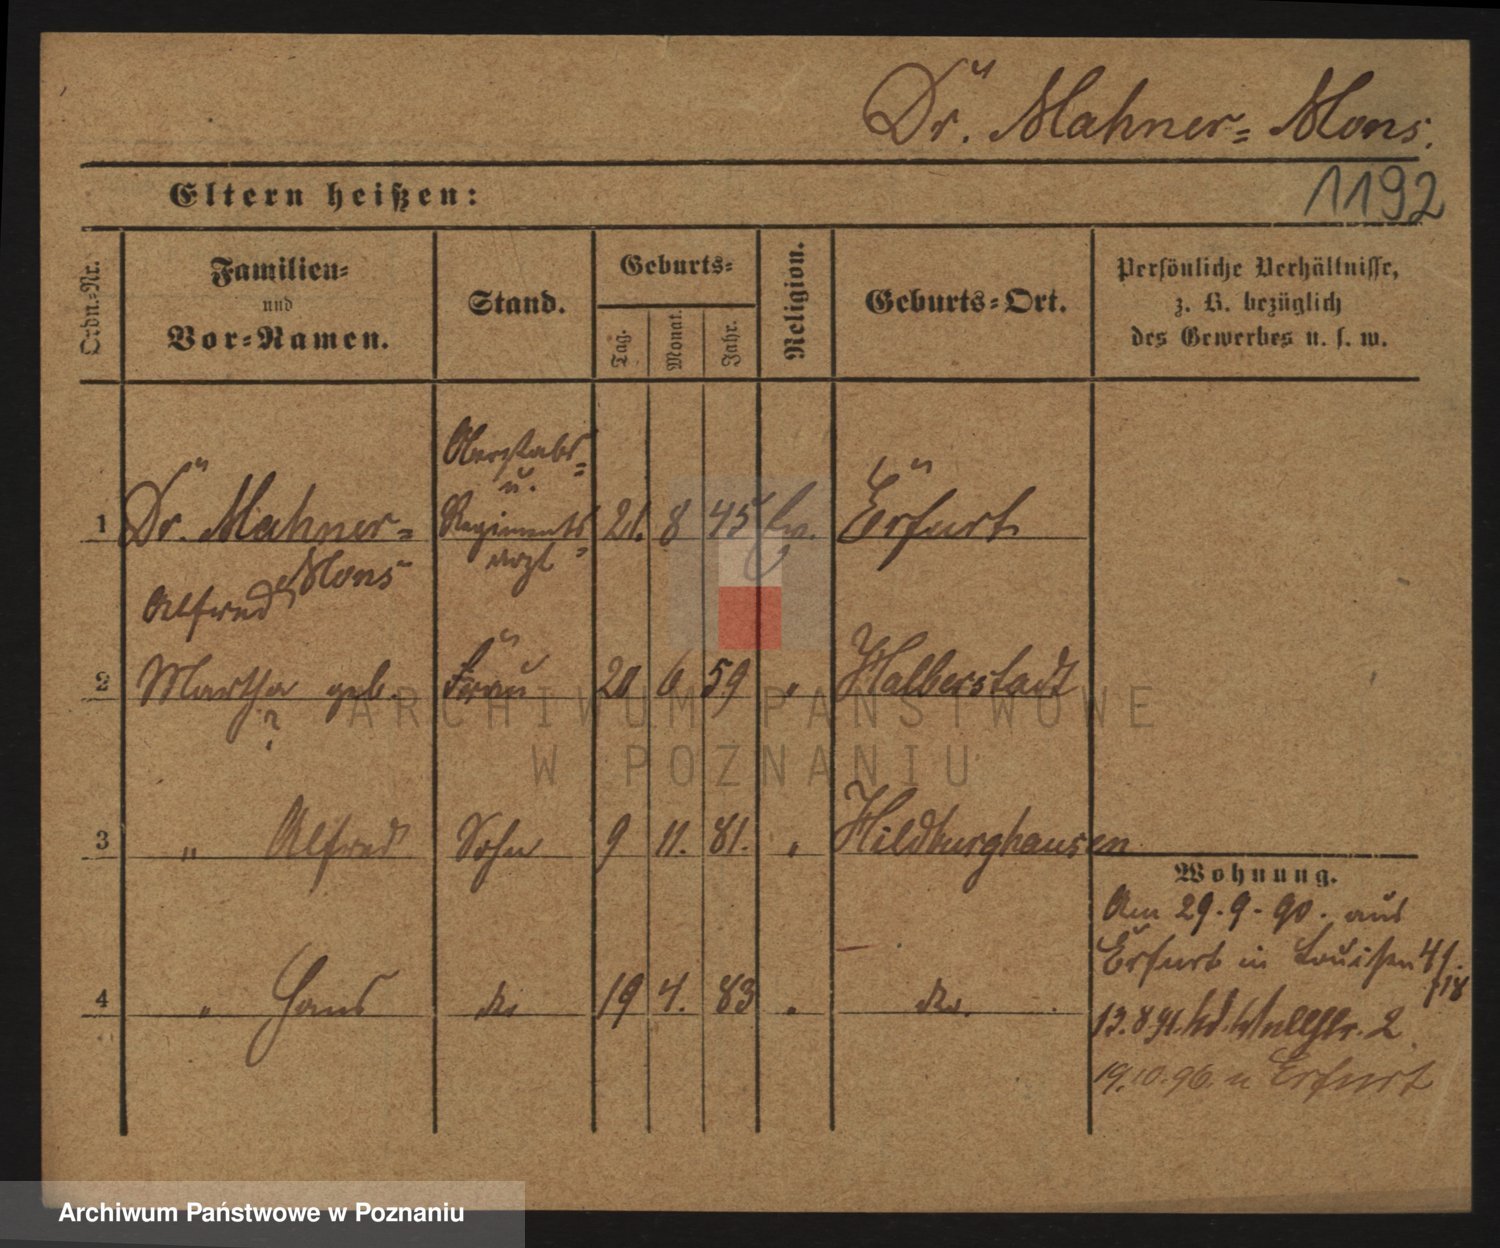 Dr. Mahner= Mons.
1192
Eltern heißen:
Ordn.=Nr.
Familien=
und
Vor=Namen.
Stand.
Geburts=
Tag.
Monat.
Jahr.
Religion.
Geburts=Ort.
Persönliche Verhältnisse,
z. B. bezüglich
des Gewerbes u. s. w.
1 Dr. Mahner= Mons Alfred
Oberstabs=
u.
Regiments=
arzt
21. 8 45 Ev. Erfurt
2 Martha geb. ? Frau 20 6 59 " Halberstadt
3 " Alfred Sohn 9 11. 81. " Hildburghausen
4 " Hans do 19 4. 83 " do.
Wohnung.
Am 29.9.90. aus
Erfurt in Louisen
13.8.91. 2
19.10.96. n Erfurt
ARCHIWUM PAŃSTWOWE
W POZNANIU
Archiwum Państwowe w Poznaniu